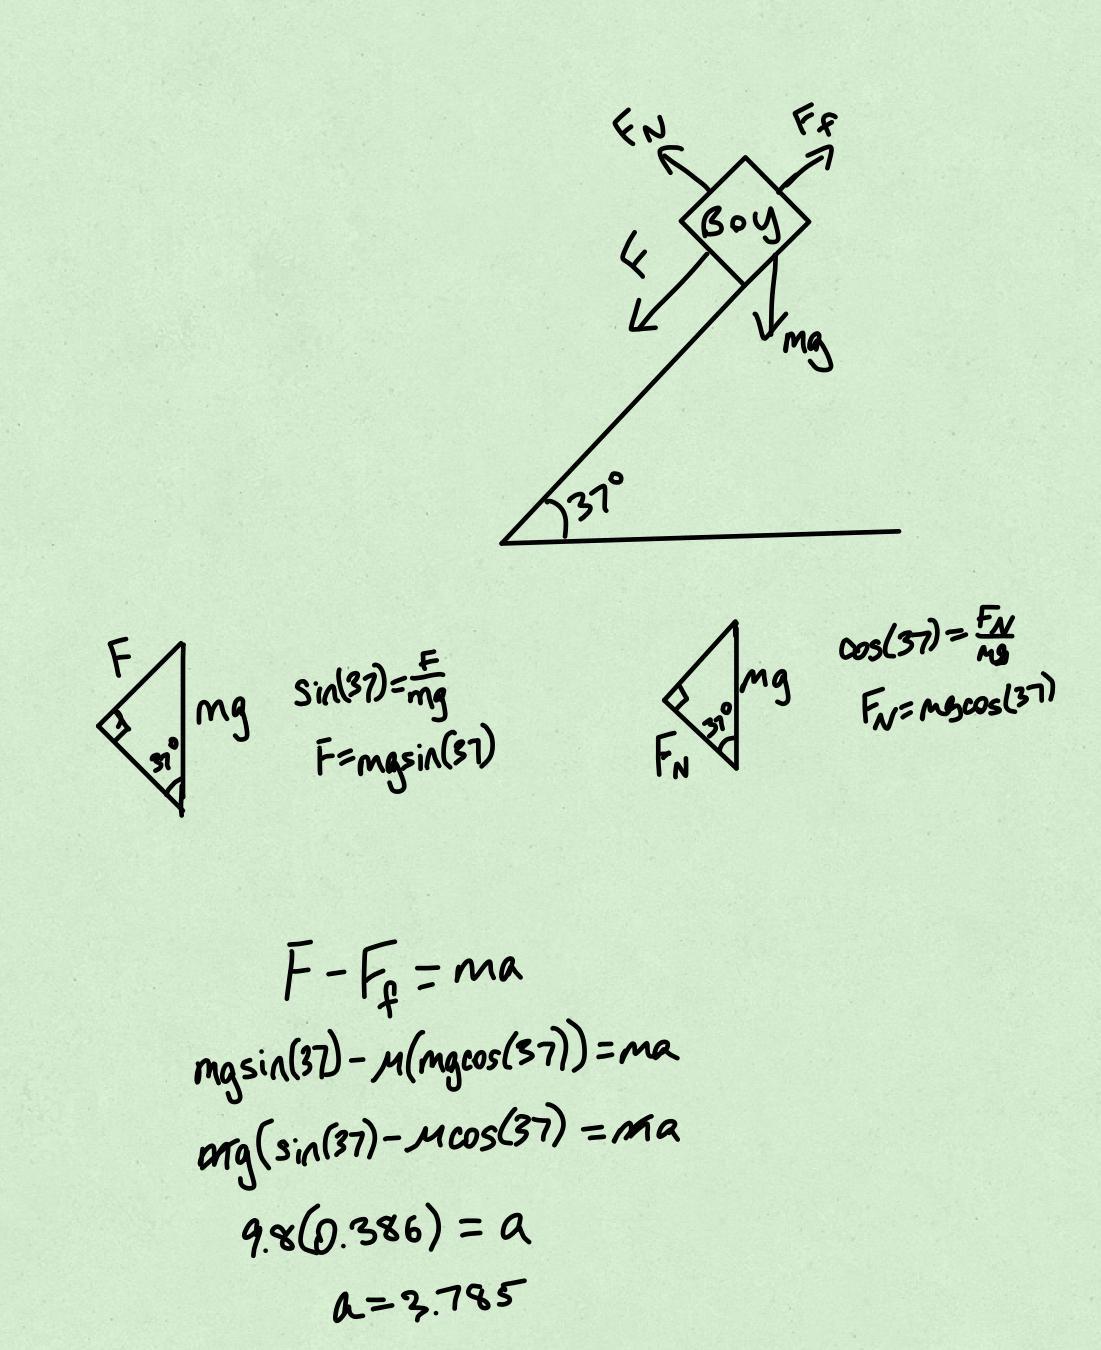 F_N
F_f
BOY
F
mg
37°
F
mg
37°
sin(37)=F/mg
F=mgsin(37)
mg
37°
F_N
cos(37)=F_N/mg
F_N=mgcos(37)
F-F_f=ma
mgsin(37)-μ(mgcos(37))=ma
mg(sin(37)-μcos(37)=ma
9.8(0.386)=a
a=3.785